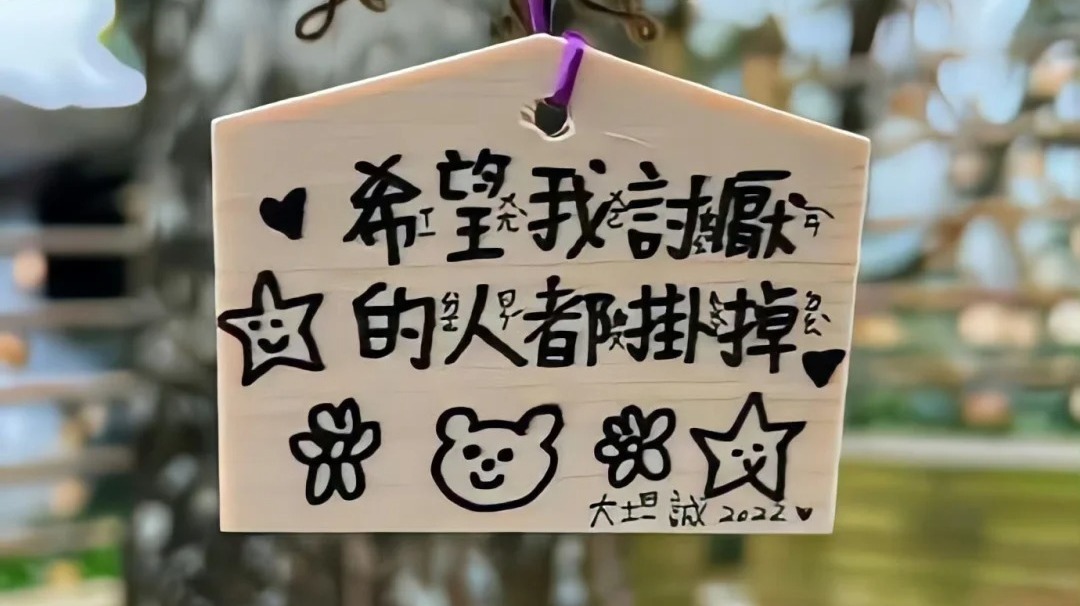 希望我討厭
的人都掛掉
大坦誠 2022